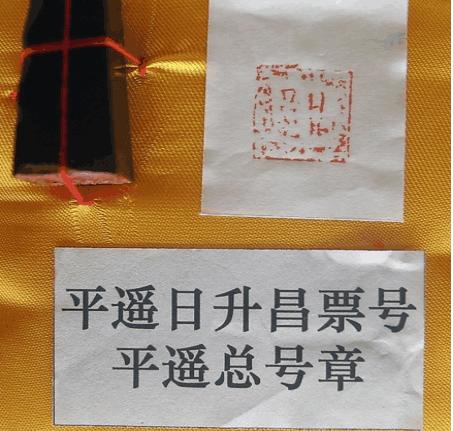 平遥日升昌票号
平遥总号章